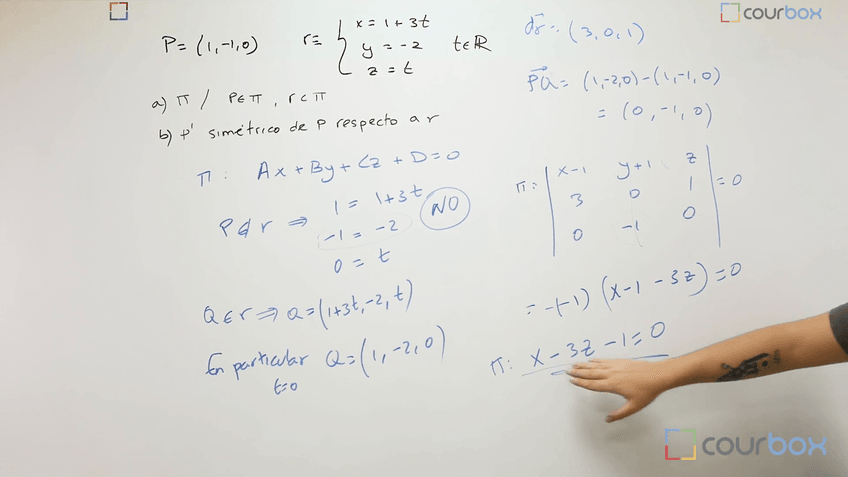 courbox
P = (1,-1,0)
r ≡ { x = 1+3t
y = -2
z = t
t∈ℝ
a) π / P∈π , r⊂π
b) P' simétrico de P respecto a r
π: Ax + By + Cz + D = 0
P∉r ⇒ 1 = 1+3t
-1 = -2
0 = t
NO
Q∈r ⇒ Q = (1+3t, -2, t)
En particular Q = (1, -2, 0)
t=0
dr = (3, 0, 1)
PQ = (1,-2,0) - (1,-1,0)
= (0, -1, 0)
π: | x-1 y+1 z |
| 3 0 1 | = 0
| 0 -1 0 |
= -(-1) (x-1-3z) = 0
π: x - 3z - 1 = 0
courbox